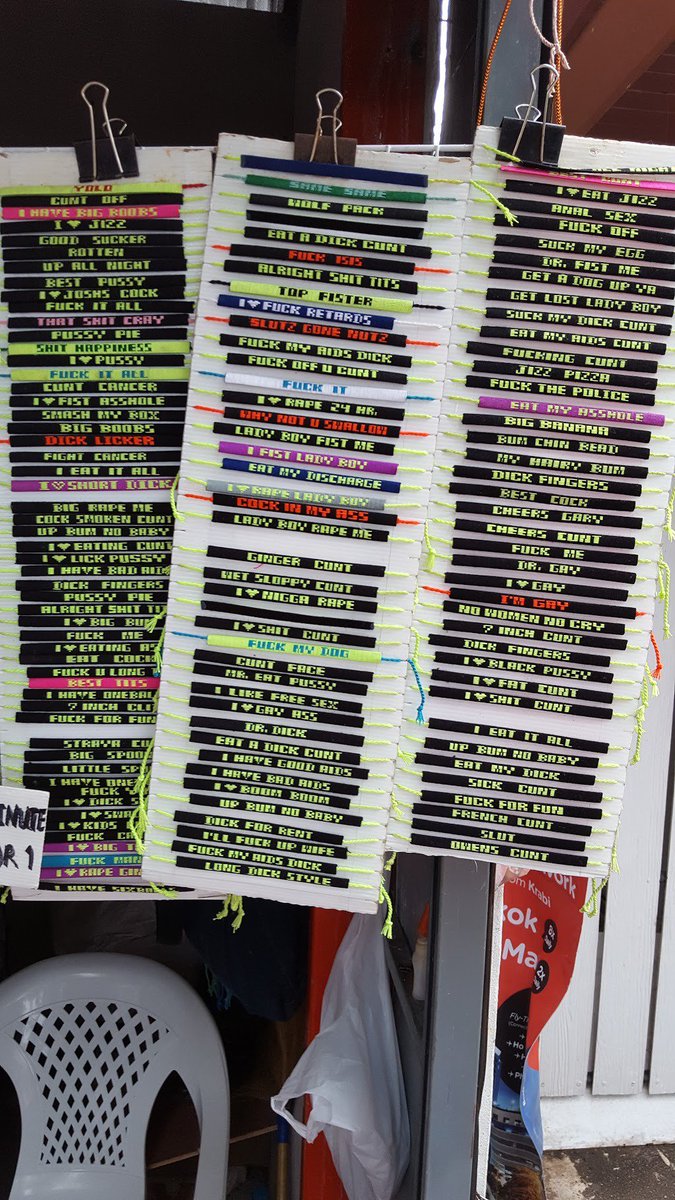 YOLO
CUNT OFF
I HAVE BIG BOOBS
I ♥ JIZZ
GOOD SUCKER
ROTTEN
UP ALL NIGHT
BEST PUSSY
I ♥ JOSHS COCK
FUCK IT ALL
THAT SHIT CRAY
PUSSY PIE
SHIT HAPPINESS
I ♥ PUSSY
FUCK IT ALL
CUNT CANCER
I ♥ FIST ASSHOLE
SMASH MY BOX
BIG BOOBS
DICK LICKER
FIGHT CANCER
I EAT IT ALL
I ♥ SHORT DICK
BIG RAPE ME
COCK SMOKEN CUNT
UP BUM NO BABY
I ♥ EATING CUNT
I ♥ LICK PUSSY
I HAVE BAD AIDS
DICK FINGERS
PUSSY PIE
ALRIGHT SHIT TI
I ♥ BIG BU
FUCK ME
I ♥ EATING AS
EAT COCK
FUCK U LONG
BEST TITS
I HAVE ONEBA
7 INCH CLI
FUCK FOR FUN
STRAYA CU
BIG SPOO
LITTLE SP
I HAVE ONE
FUCK
I ♥ DICK
I ♥ SWA
I ♥ KIDS
FUCK CA
I ♥ BIG
FUCK MAN
I ♥ RAPE GIN
I HAVE SIXBA
INUTE
OR 1
SAME SAME
WOLF PACK
EAT A DICK CUNT
FUCK ISIS
ALRIGHT SHIT TITS
TOP FISTER
I ♥ FUCK RETARDS
SLUTZ GONE NUTZ
FUCK MY AIDS DICK
FUCK OFF U CUNT
FUCK IT
I ♥ RAPE 24 HR.
WHY NOT U SWALLOW
LADY BOY FIST ME
I FIST LADY BOY
EAT MY DISCHARGE
I ♥ RAPE LADY BOY
COCK IN MY ASS
LADY BOY RAPE ME
GINGER CUNT
WET SLOPPY CUNT
I ♥ NIGGA RAPE
I ♥ SHIT CUNT
FUCK MY DOG
CUNT FACE
MR. EAT PUSSY
I LIKE FREE SEX
I ♥ GAY ASS
DR. DICK
EAT A DICK CUNT
I HAVE GOOD AIDS
I HAVE BAD AIDS
I ♥ BOOM BOOM
UP BUM NO BABY
DICK FOR RENT
I'LL FUCK UP WIFE
FUCK MY AIDS DICK
LONG DICK STYLE
CUNT
I ♥ EAT JIZZ
ANAL SEX
FUCK OFF
SUCK MY EGG
DR. FIST ME
GET A DOG UP YA
GET LOST LADY BOY
SUCK MY DICK CUNT
EAT MY AIDS CUNT
FUCKING CUNT
JIZZ PIZZA
FUCK THE POLICE
EAT MY ASSHOLE
BIG BANANA
BUM CHIN BEAD
MY HAIRY BUM
DICK FINGERS
BEST COCK
CHEERS GARY
CHEERS CUNT
FUCK ME
DR. GAY
I ♥ GAY
I'M GAY
NO WOMEN NO CRY
7 INCH CUNT
DICK FINGERS
I ♥ BLACK PUSSY
I ♥ FAT CUNT
I ♥ SHIT CUNT
I EAT IT ALL
UP BUM NO BABY
EAT MY DICK
SICK CUNT
FUCK FOR FUN
FRENCH CUNT
SLUT
OWENS CUNT
work
om Krabi
kok
Ma
Fly-T